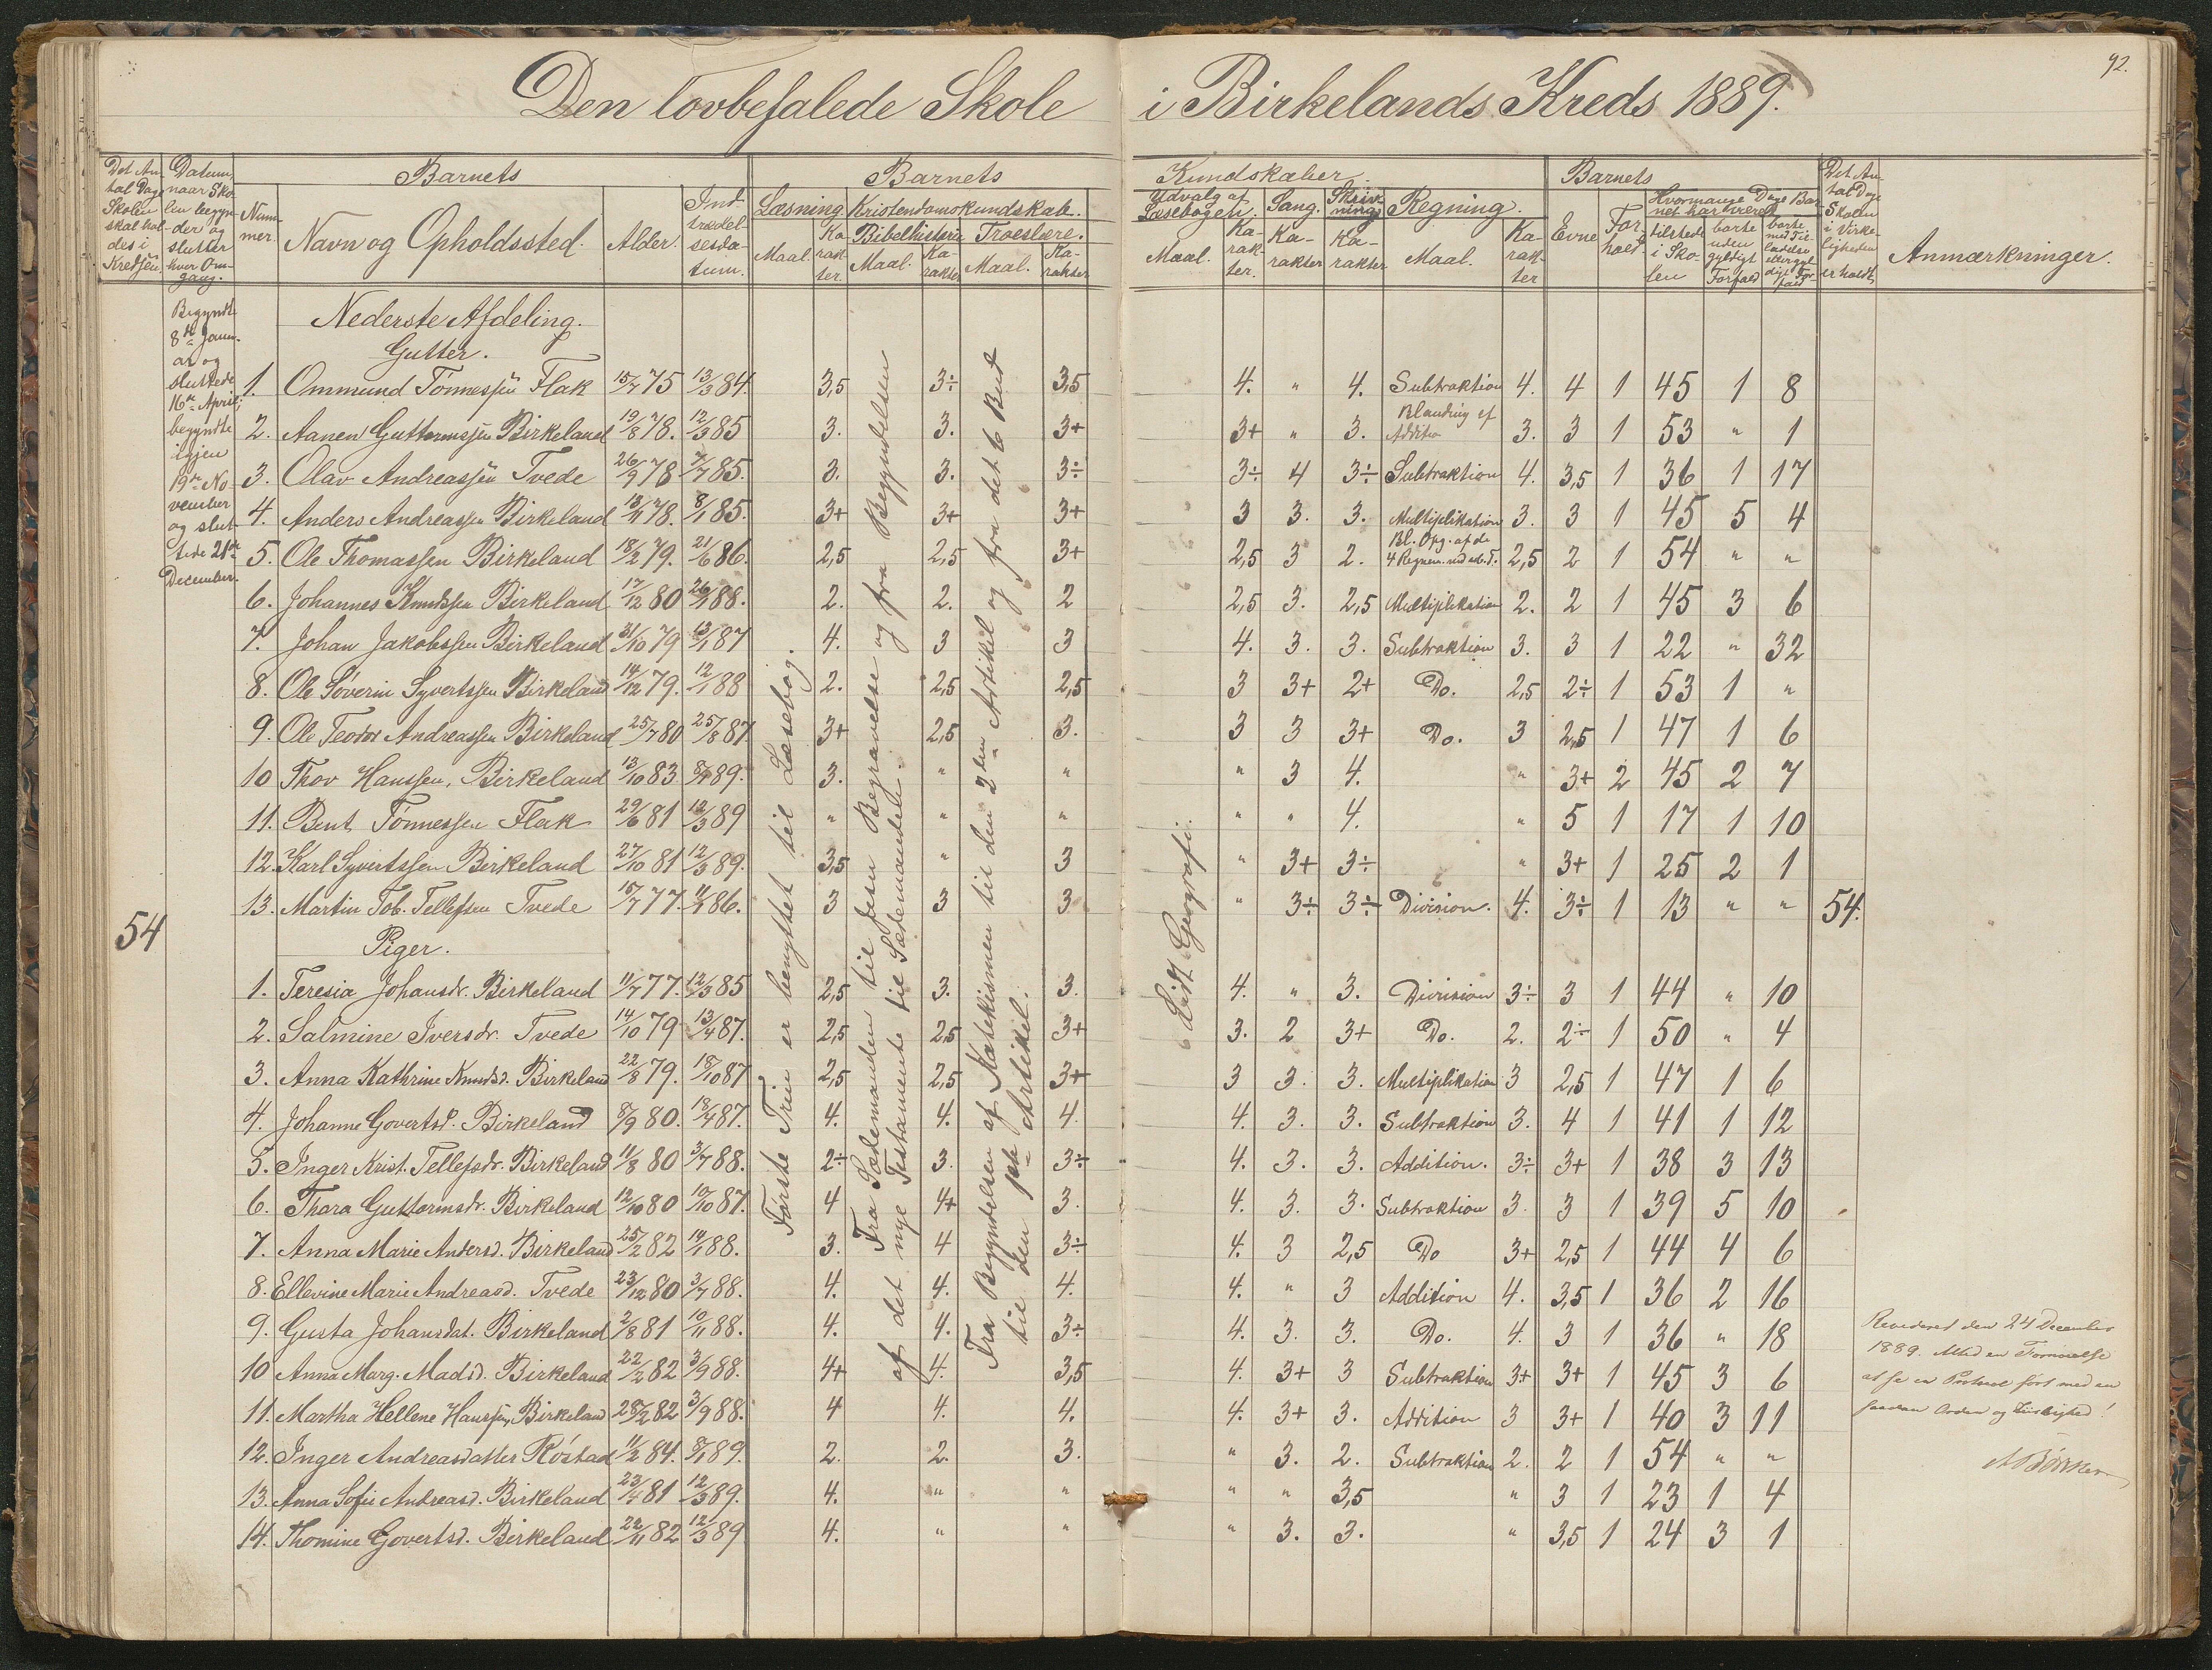 92.
Den lovbefalede Skole i Birkelands Kreds 1889.
Det An-
tal Dage
Skolen
skal hol-
des i
Kredsen
Datum,
naar Sko-
len begyn-
der og
slutter
hver Om-
gang.
Barnets
Num-
mer.
Navn og Opholdssted.
Alder.
Ind-
trædel-
sesda-
tum.
Barnets
Læsning
Maal.
Ka-
rak-
ter.
Kristendomskundskab.
Bibelhistorie
Maal.
Ka-
rakter
Troeslære.
Maal.
Ka-
rakter
Kundskaber.
Udvalg af
Læsebogen.
Maal.
Ka-
rak-
ter.
Sang.
Ka-
rakter
Skriv-
ning
Ka-
rakter
Regning.
Maal.
Ka-
rak-
ter
Barnets
Evne
For-
hold.
Hvormange Dage Bar-
net har været
tilstede
i Sko-
len
borte
uden
gyldigt
Forfald
borte
med Til-
ladelse
eller gyl-
digt For-
fald
Det An-
tal Dage
Skolen
i Virke-
ligheden
er holdt
Anmærkninger.
Begyndte
8de Janu-
ar og
sluttede
16de April;
begyndte
igjen
19de No-
vember
og slut-
tede 21de
December.
54
Nederste Afdeling.
Gutter.
1. Ommund Tønnessen Flak 15/7 75 13/3 84. 3,5 3÷ 3,5 4. " 4. Subtraktion 4. 4 1 45 1 8
2. Aanen Guttormssen Birkeland 19/8 78. 12/3 85 3. 3. 3+ 3+ " 3. Blanding af Additio 3. 3 1 53 " 1
3. Olav Andreassen Tvede 26/9 78 7/7 85. 3. 3. 3÷ 3÷ 4 3÷ Subtraktion 4. 3,5 1 36 1 17
4. Anders Andreassen Birkeland 13/11 78. 8/1 85. 3+ 3+ 3+ 3 3. 3. Multiplikation 3. 3 1 45 5 4
5. Ole Thomassen Birkeland 18/2 79. 21/6 86. 2,5 2,5 3+ 2,5 3 2. Bl. Opg. af de 4 Regnem. 2,5 2 1 54 " "
6. Johannes Knudssen Birkeland 17/12 80 26/1 88. 2. 2. 2 2,5 3. 2,5 Multiplikation 2. 2 1 45 3 6
7. Johan Jakobssen Birkeland 31/10 79 13/1 87 4. 3 3 4. 3. 3. Subtraktion 3. 3 1 22 " 32
8. Ole Søverin Syvertssen Birkeland 14/12 79. 12/1 88 2. 2,5 2,5 3 3+ 2+ Do. 2,5 2÷ 1 53 1 "
9. Ole Teodor Andreassen Birkeland 25/7 80 25/8 87 3+ 2,5 3. 3 3 3+ Do. 3 2,5 1 47 1 6
10 Thov Hanssen, Birkeland 13/10 83 8/1 89. 3. " " " 3 4. " 3+ 2 45 2 7
11. Bent Tønnessen Flak 29/6 81 12/3 89 " " " " " 4. " 5 1 17 1 10
12. Karl Syvertssen Birkeland 27/10 81 12/3 89. 3,5 " 3 " 3+ 3÷ " 3+ 1 25 2 1
13. Martin Tob. Tellefsen Tvede 15/7 77. 11/1 86. 3 3 3 " 3÷ 3÷ Division. 4. 3÷ 1 13 " " 54.
Piger.
1. Teresia Johansdr. Birkeland 11/7 77. 12/3 85 2,5 3. 3. 4. " 3. Division 3÷ 3 1 44 " 10
2. Salmine Iversdr. Tvede 14/10 79 13/4 87. 2,5 2,5 3+ 3. 2 3+ Do. 2. 2÷ 1 50 " 4
3. Anna Kathrine Knudsd. Birkeland 22/8 79. 18/10 87 2,5 2,5 3+ 3 3. 3. Multiplikation 3 2,5 1 47 1 6
4. Johanne Govertsd. Birkeland 8/9 80. 13/4 87. 4. 4. 4. 4. 3. 3. Subtraktion 3. 4 1 41 1 12
5. Inger Krist. Tellefsdr. Birkeland 11/8 80 3/7 88. 2÷ 3. 3÷ 4. 3. 3. Addition. 3÷ 3+ 1 38 3 13
6. Thara Guttormsdr. Birkeland 12/10 80 19/10 87. 4 4+ 3. 4. 3. 3. Subtraktion 3. 3 1 39 5 10
7. Anna Marie Andersd. Birkeland 25/2 82 14/1 88. 3. 4 3÷ 4. 3 2,5 Do 3+ 2,5 1 44 4 6
8. Ellevine Marie Andreasd. Tvede 23/12 80 3/7 88. 4. 4. 4. 4. " 3 Addition 4. 3,5 1 36 2 16
9. Gusta Johansdat. Birkeland 2/8 81 10/11 88. 4. 4. 3÷ 4. 3. 3. Do. 4. 3 1 36 " 18
10 Anna Marg. Madsd. Birkeland 22/2 82 3/9 88. 4+ 4. 3,5 4. 3+ 3 Subtraktion 3+ 3+ 1 45 3 6
11. Martha Hellene Hanssen, Birkeland 28/2 82 3/9 88. 4 4. 4. 4. 3+ 3. Addition 3 3+ 1 40 3 11
12. Inger Andreasdatter Róstad 11/2 84. 8/1 89. 2. 2. 3. " 3. 2. Subtraktion 2. 2 1 54 " "
13. Anna Sofie Andreasd. Birkeland 23/4 81 12/3 89. 4. " " " " 3,5 " 3 1 23 1 4
14. Thomine Govertsd. Birkeland 22/11 82 12/3 89 4. " " " 3. 3. " 3,5 1 24 3 1
Første Trin er benyttet til Læsebog.
Fra Sædemanden til Jesu Begravelse og fra Begyndelsen
af det nye Testamente til Sædemanden.
Fra Begyndelsen af Katekismen til den 2den Artikel og fra det 6 Bud
til den Artikel.
Lidt Geografi.
Revideret den 24 December
1889. Med en Fornøielse
at se en Protocol ført med en
saadan Orden og !